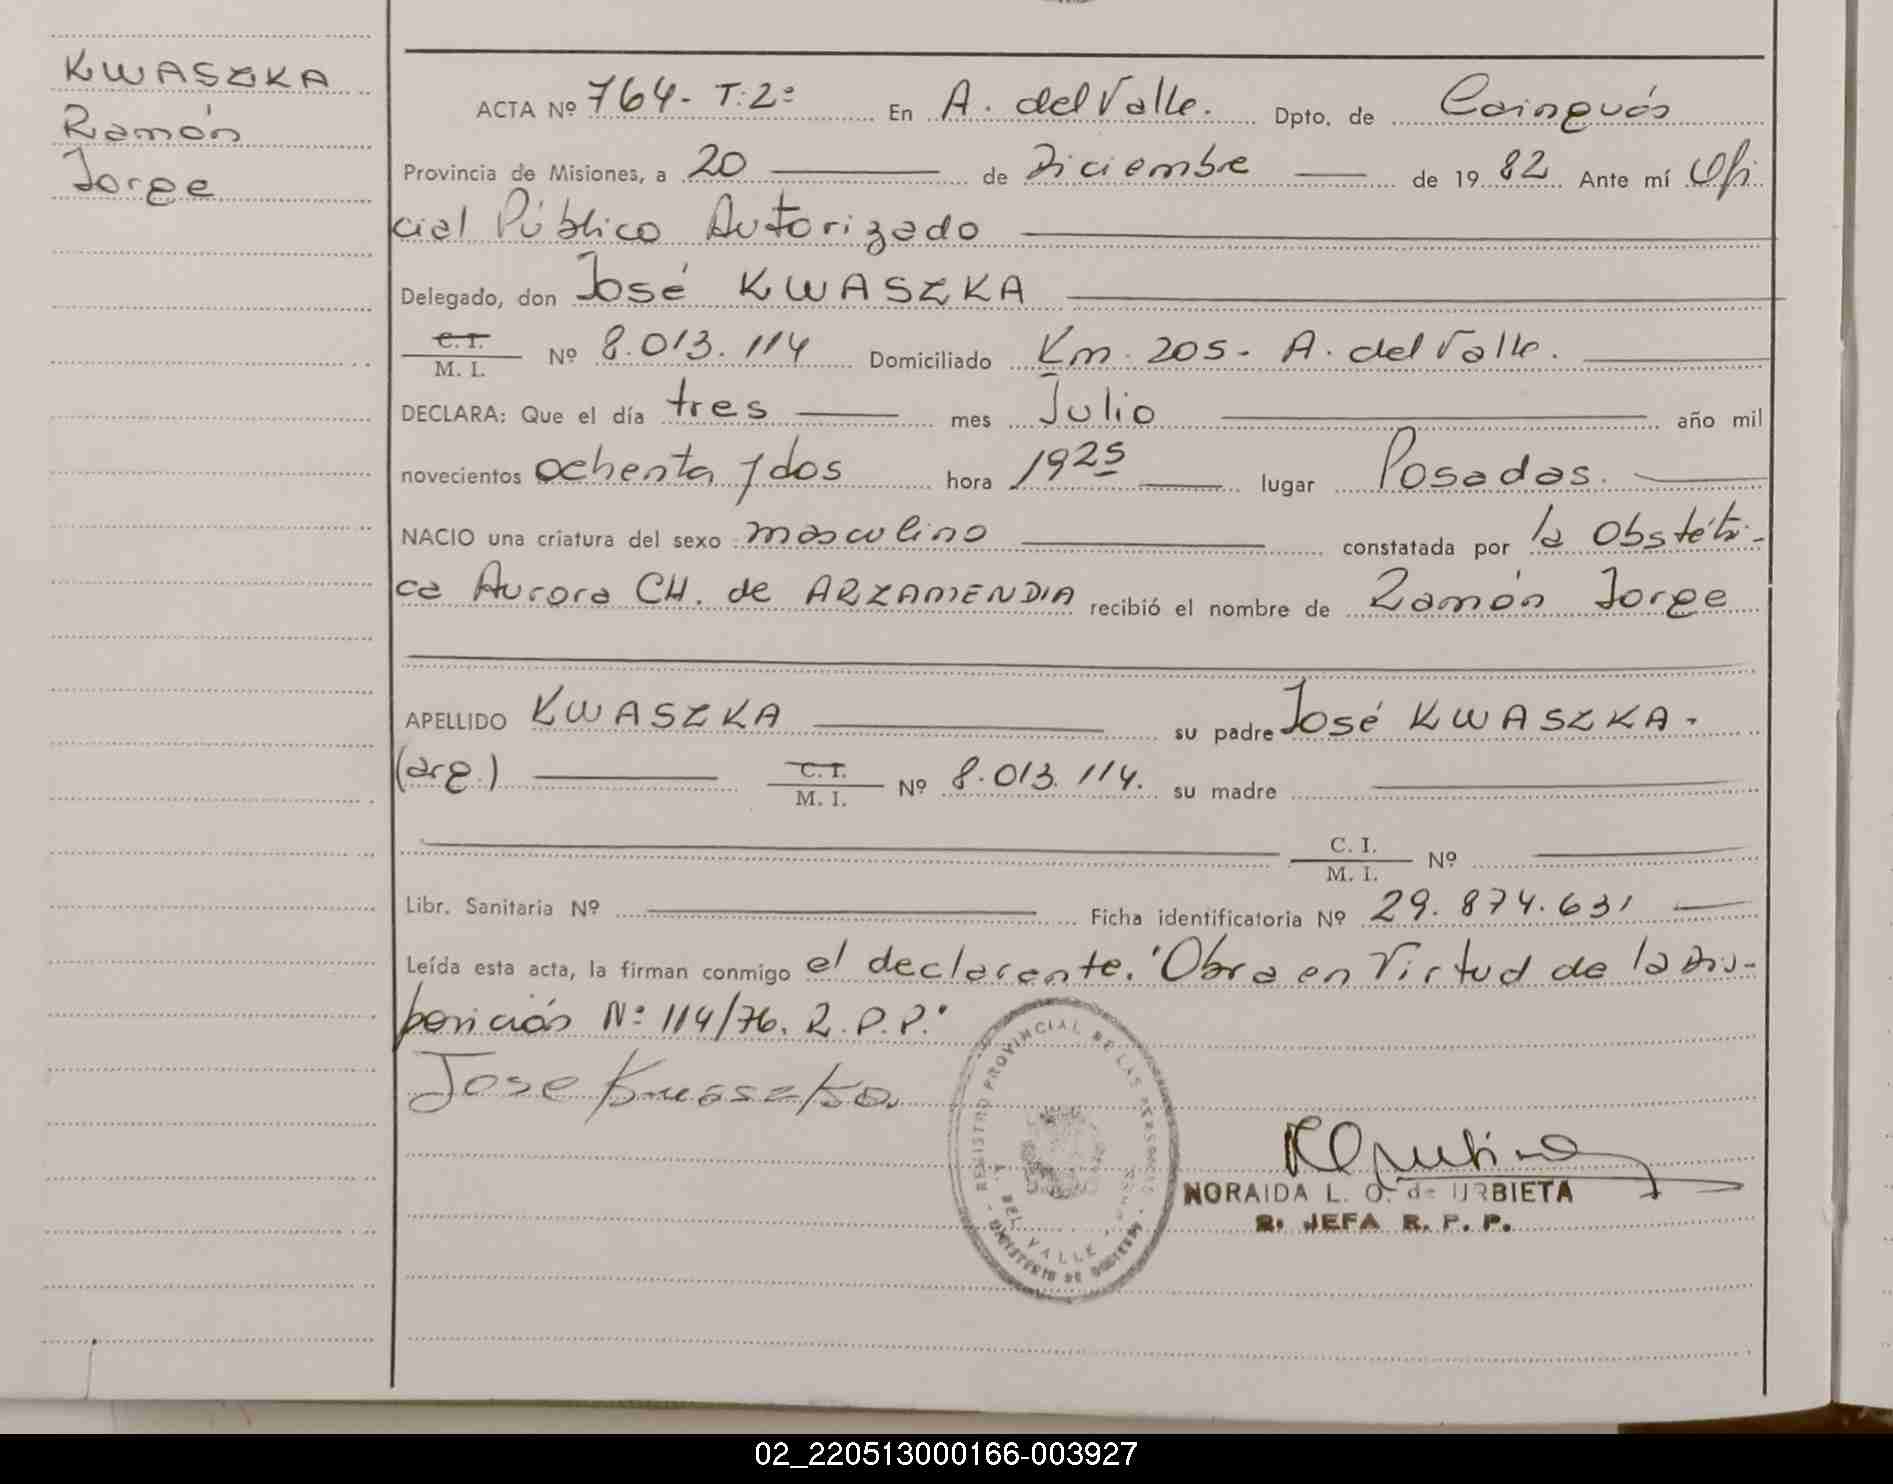 KWASZKA
Ramón
Jorge
ACTA Nº 764- T: 2º En A. del Valle. Dpto. de Cainguás
Provincia de Misiones, a 20 de Diciembre de 1982 Ante mí Ofi
cial Público Autorizado
Delegado, don José KWASZKA
C. I.
M. I. Nº 8.013.114 Domiciliado Km. 205- A. del Valle.
DECLARA: Que el día tres mes Julio año mil
novecientos ochenta y dos hora 1925 lugar Posadas.
NACIO una criatura del sexo masculino constatada por la Obstétri-
ca Aurora CH. de ARZAMENDIA recibió el nombre de Ramón Jorge
APELLIDO KWASZKA su padre José KWASZKA.
(arg.) C. I.
M. I. Nº 8.013.114. su madre
C. I.
M. I. Nº
Libr. Sanitaria Nº Ficha identificatoria Nº 29.874.631
Leída esta acta, la firman conmigo el declarente. "Obra en Virtud de la Dis-
posición Nº 114/76. R.P.P."
Jose Kwaszka
REGISTRO PROVINCIAL DE LAS PERSONAS
A. DEL VALLE
MINISTERIO DE GOBIERNO
NORAIDA L. O. de URBIETA
R. JEFA R. P. P.
02_220513000166-003927